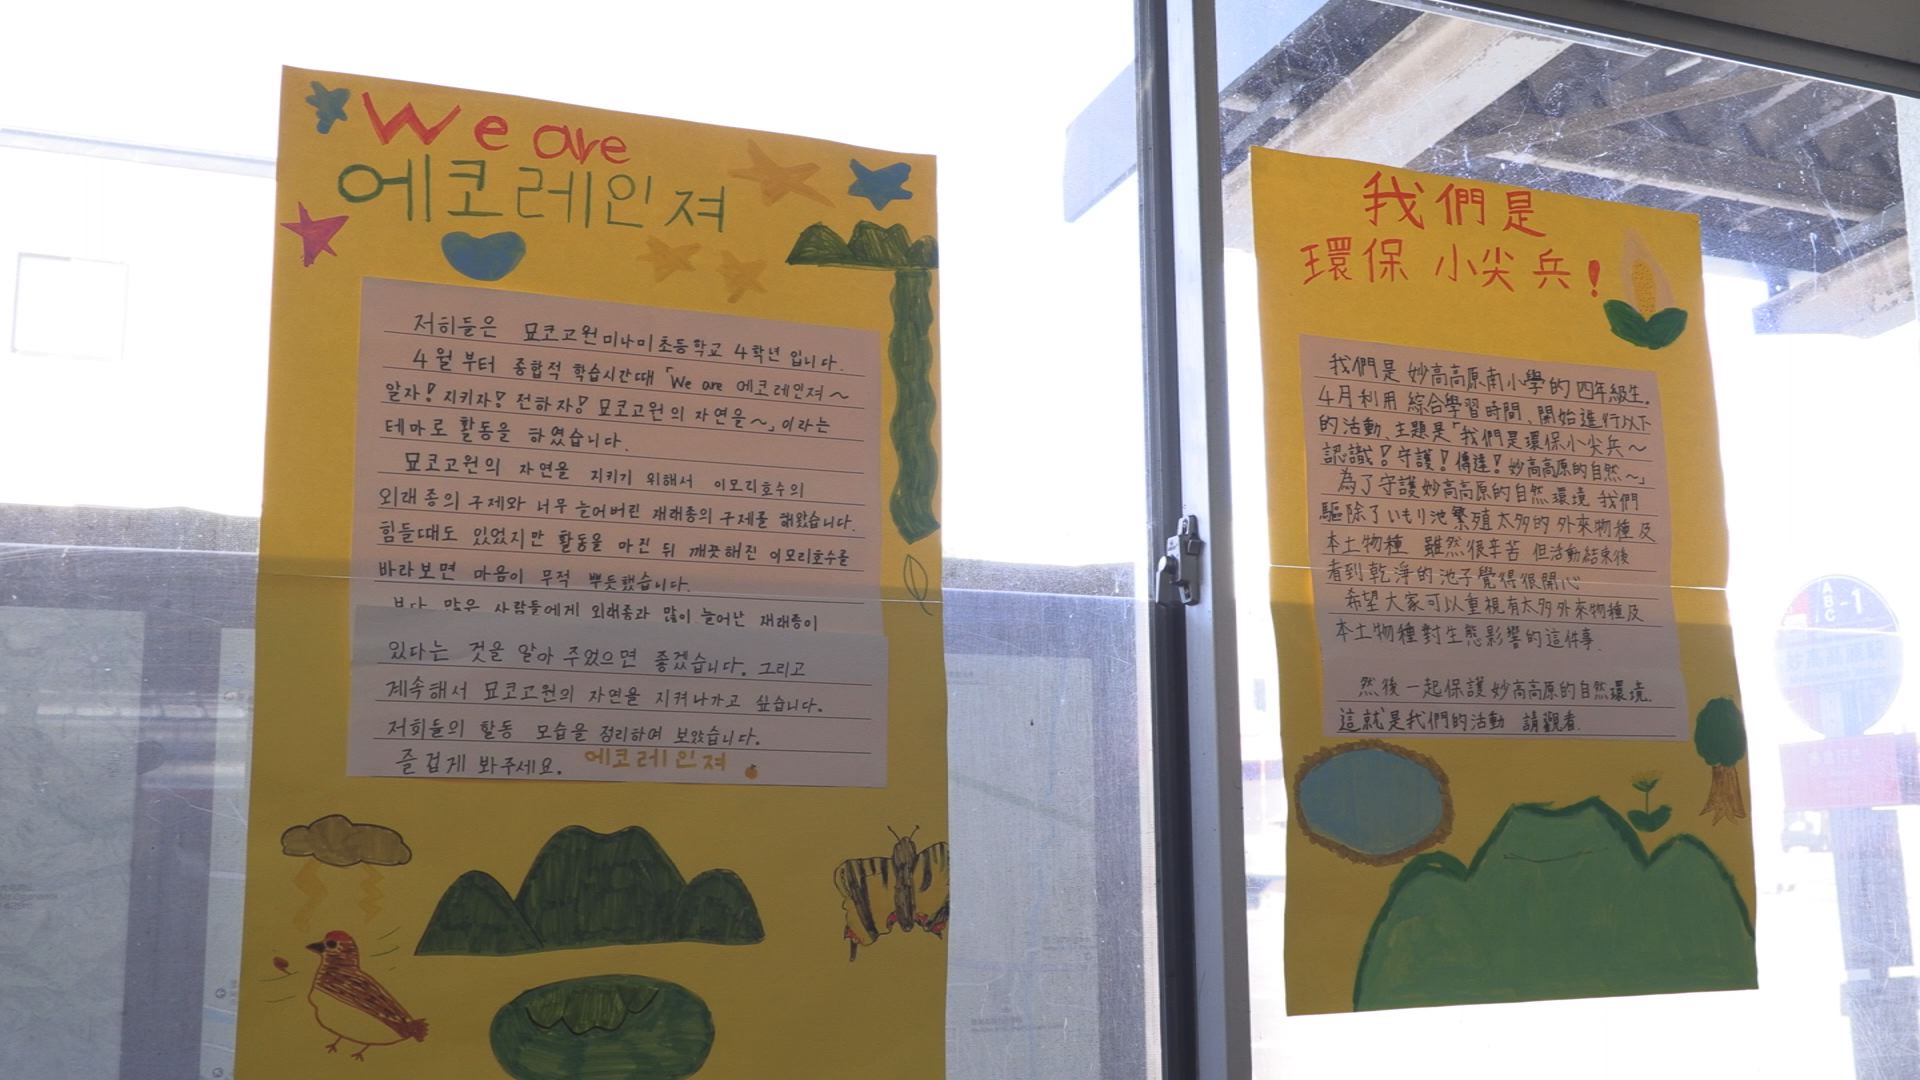 We are
에코레인져
저희들은 묘코고원미나미초등학교 4학년 입니다.
4월 부터 종합적 학습시간때 「We are 에코레인져~
알자! 지키자! 전하자! 묘코고원의 자연을~」이라는
테마로 활동을 하였습니다.
묘코고원의 자연을 지키기 위해서 이모리호수의
외래종의 구제와 너무 늘어버린 재래종의 구제를 해왔습니다.
힘들때도 있었지만 활동을 마친 뒤 깨끗해진 이모리호수를
바라보면 마음이 무척 뿌듯했습니다.
보다 많은 사람들에게 외래종과 많이 늘어난 재래종이
있다는 것을 알아 주었으면 좋겠습니다. 그리고
계속해서 묘코고원의 자연을 지켜나가고 싶습니다.
저희들의 활동 모습을 정리하여 보았습니다.
즐겁게 봐주세요. 에코레인져
我們是
環保 小尖兵!
我們是 妙高高原南小學的 四年級生.
4月利用 綜合學習時間、開始進行以下
的活動、主題是「我們是環保小尖兵~
認識!守護!傳達!妙高高原的自然~」
為了守護妙高高原的自然環境 我們
驅除了いもり池繁殖太多的外來物種及
本土物種 雖然很辛苦 但活動結束後
看到乾淨的池子覺得很開心
希望大家可以重視有太多外來物種及
本土物種對生態影響的這件事.
然後一起保護妙高高原的自然環境.
這就是我們的活動 請觀看.
A
B
C
-1